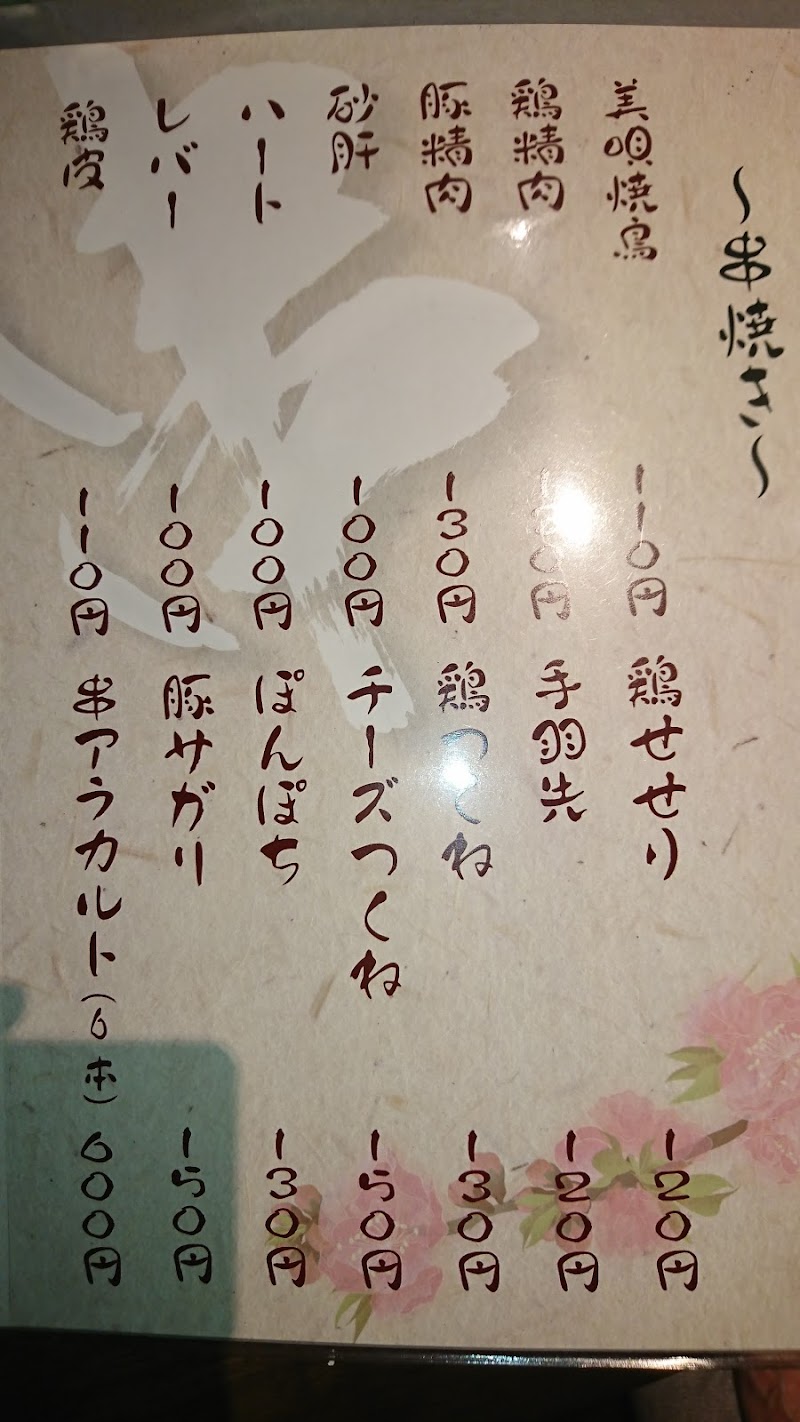 ～串焼き～
美唄焼鳥 110円
鶏精肉 円
豚精肉 130円
砂肝 100円
ハート 100円
レバー 100円
鶏皮 110円
鶏せせり 120円
手羽先 120円
鶏つくね 130円
チーズつくね 150円
ぽんぽち 130円
豚サガリ 150円
串アラカルト(6本) 600円